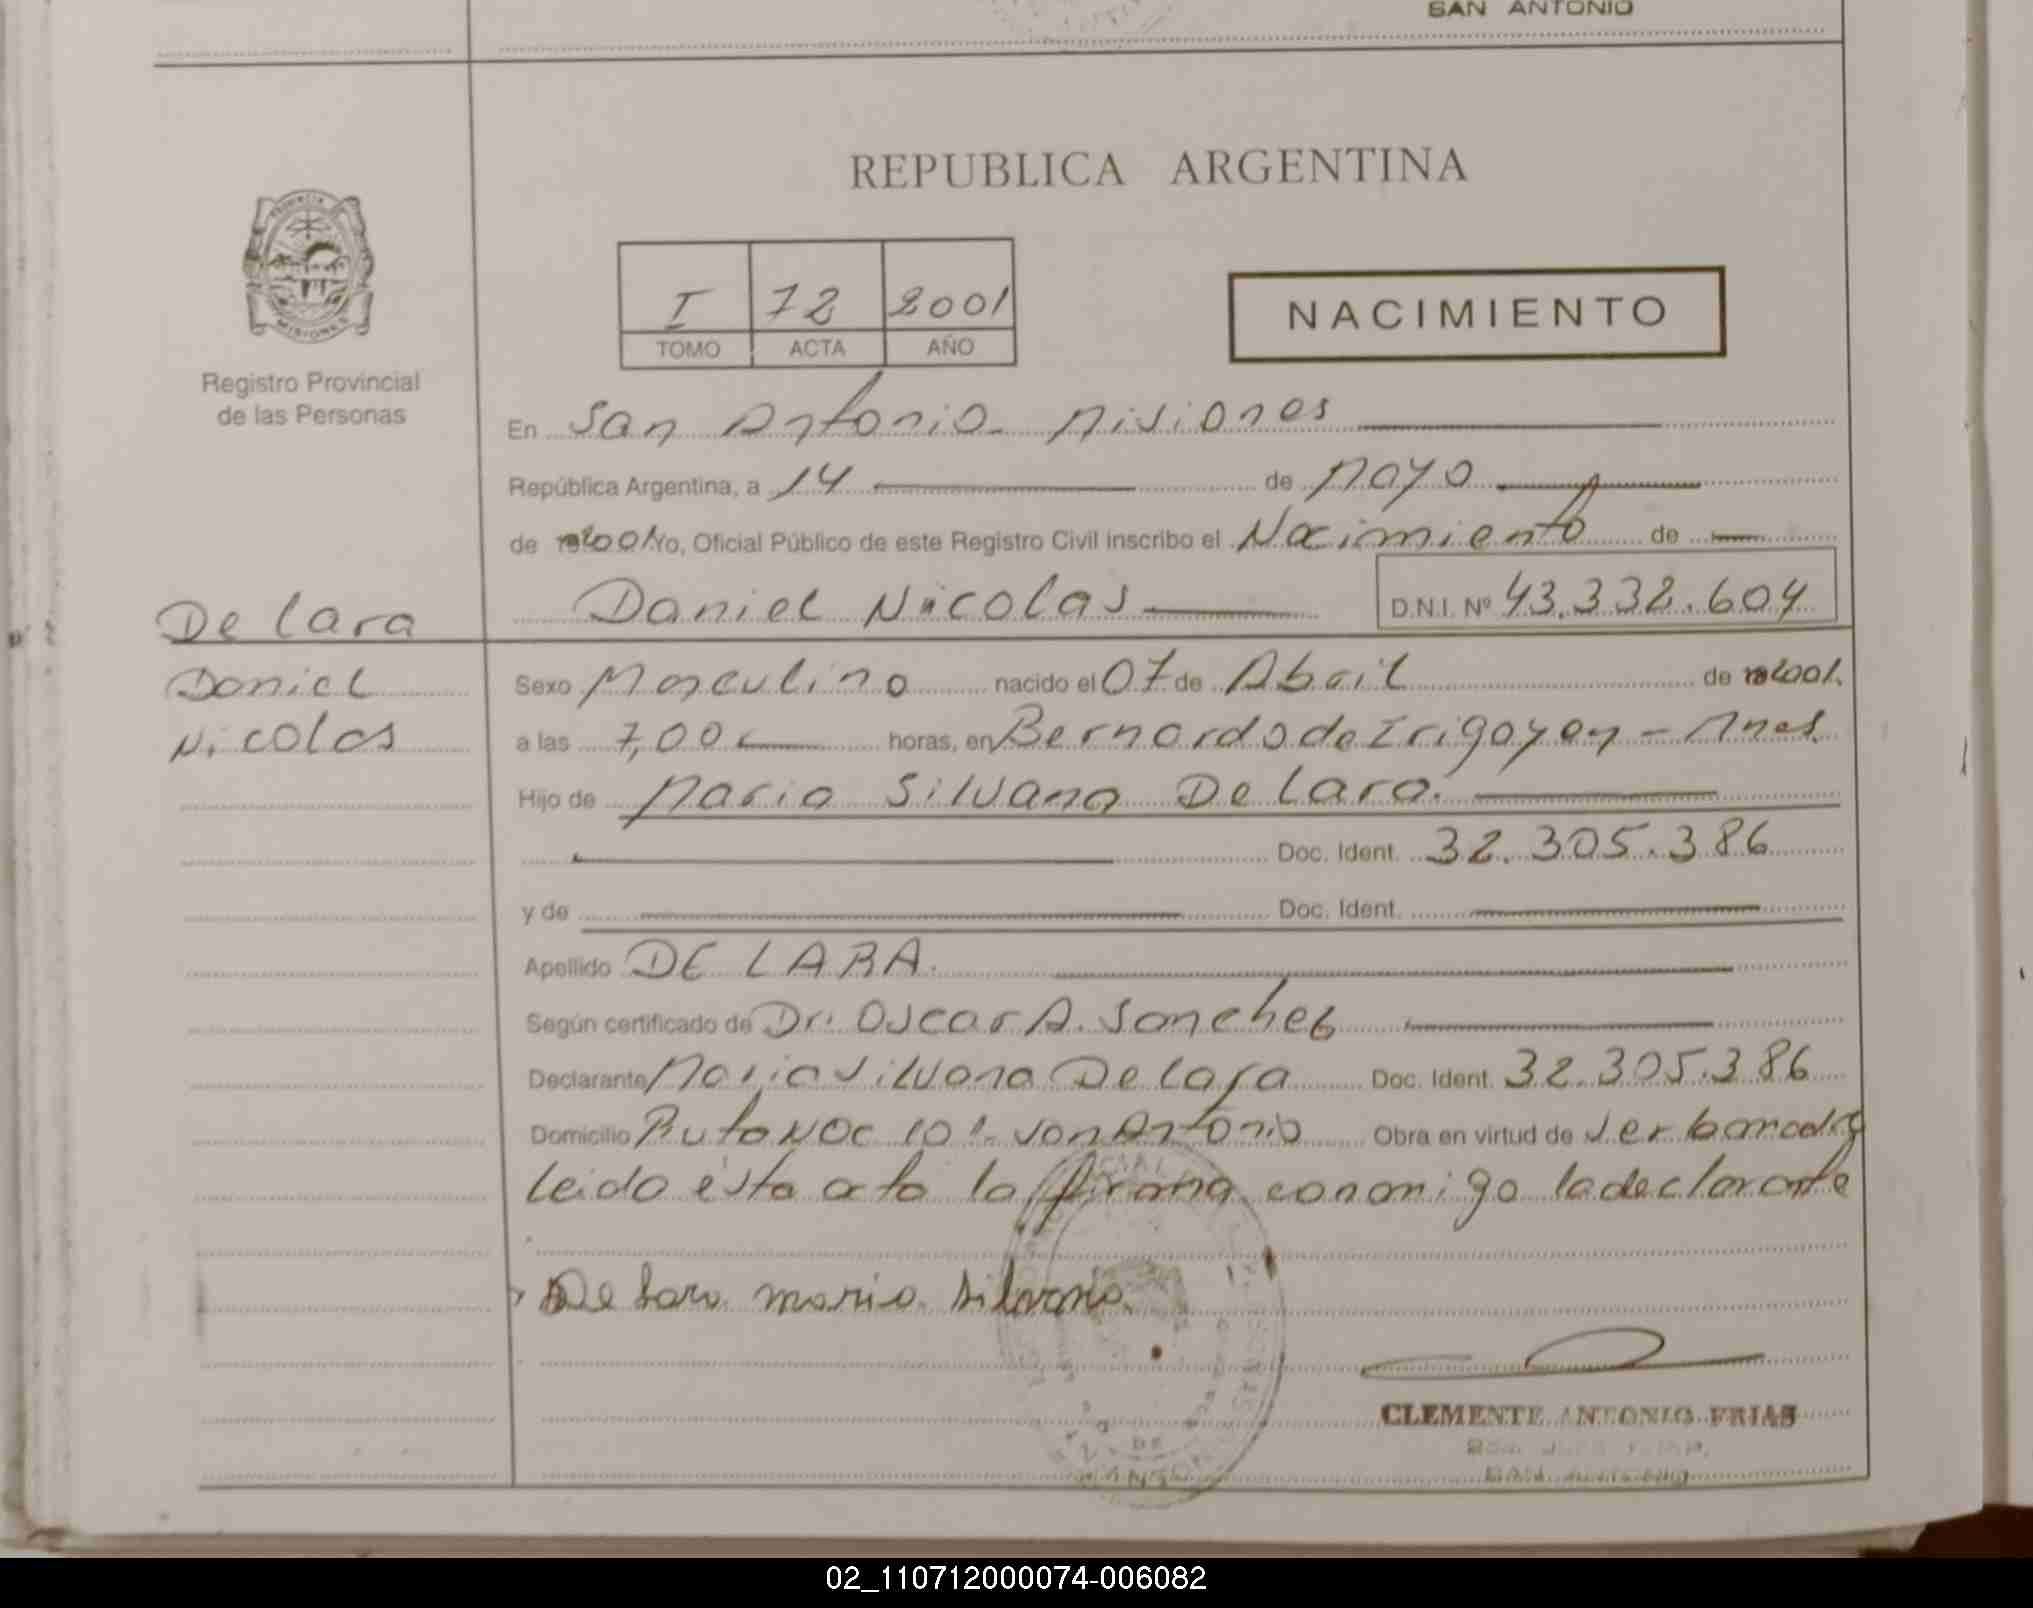 SAN ANTONIO
REPUBLICA ARGENTINA
PROVINCIA DE
MISIONES
Registro Provincial
de las Personas
I 72 2001
TOMO ACTA AÑO
NACIMIENTO
En San Antonio - Misiones
República Argentina, a 14 de Mayo
de 2001 Yo, Oficial Público de este Registro Civil inscribo el Nacimiento de
Daniel Nicolas D.N.I. Nº 43.332.604
De Lara
Daniel
Nicolas
Sexo Masculino nacido el 07 de Abril de 2001.
a las 7,00 horas, en Bernardo de Irigoyen - Mnes.
Hijo de Maria Silvana De Lara.
Doc. Ident. 32.305.386
y de Doc. Ident.
Apellido DE LARA.
Según certificado de Dr. Oscar A. Sanchez
Declarante Maria Silvana De Lara Doc. Ident. 32.305.386
Domicilio Ruta Nac 101. San Antonio Obra en virtud de ser la madre
leido esta acta la firma conmigo la declarante
De Lara Maria Silvana.
CLEMENTE ANTONIO FRIAS
02_110712000074-006082